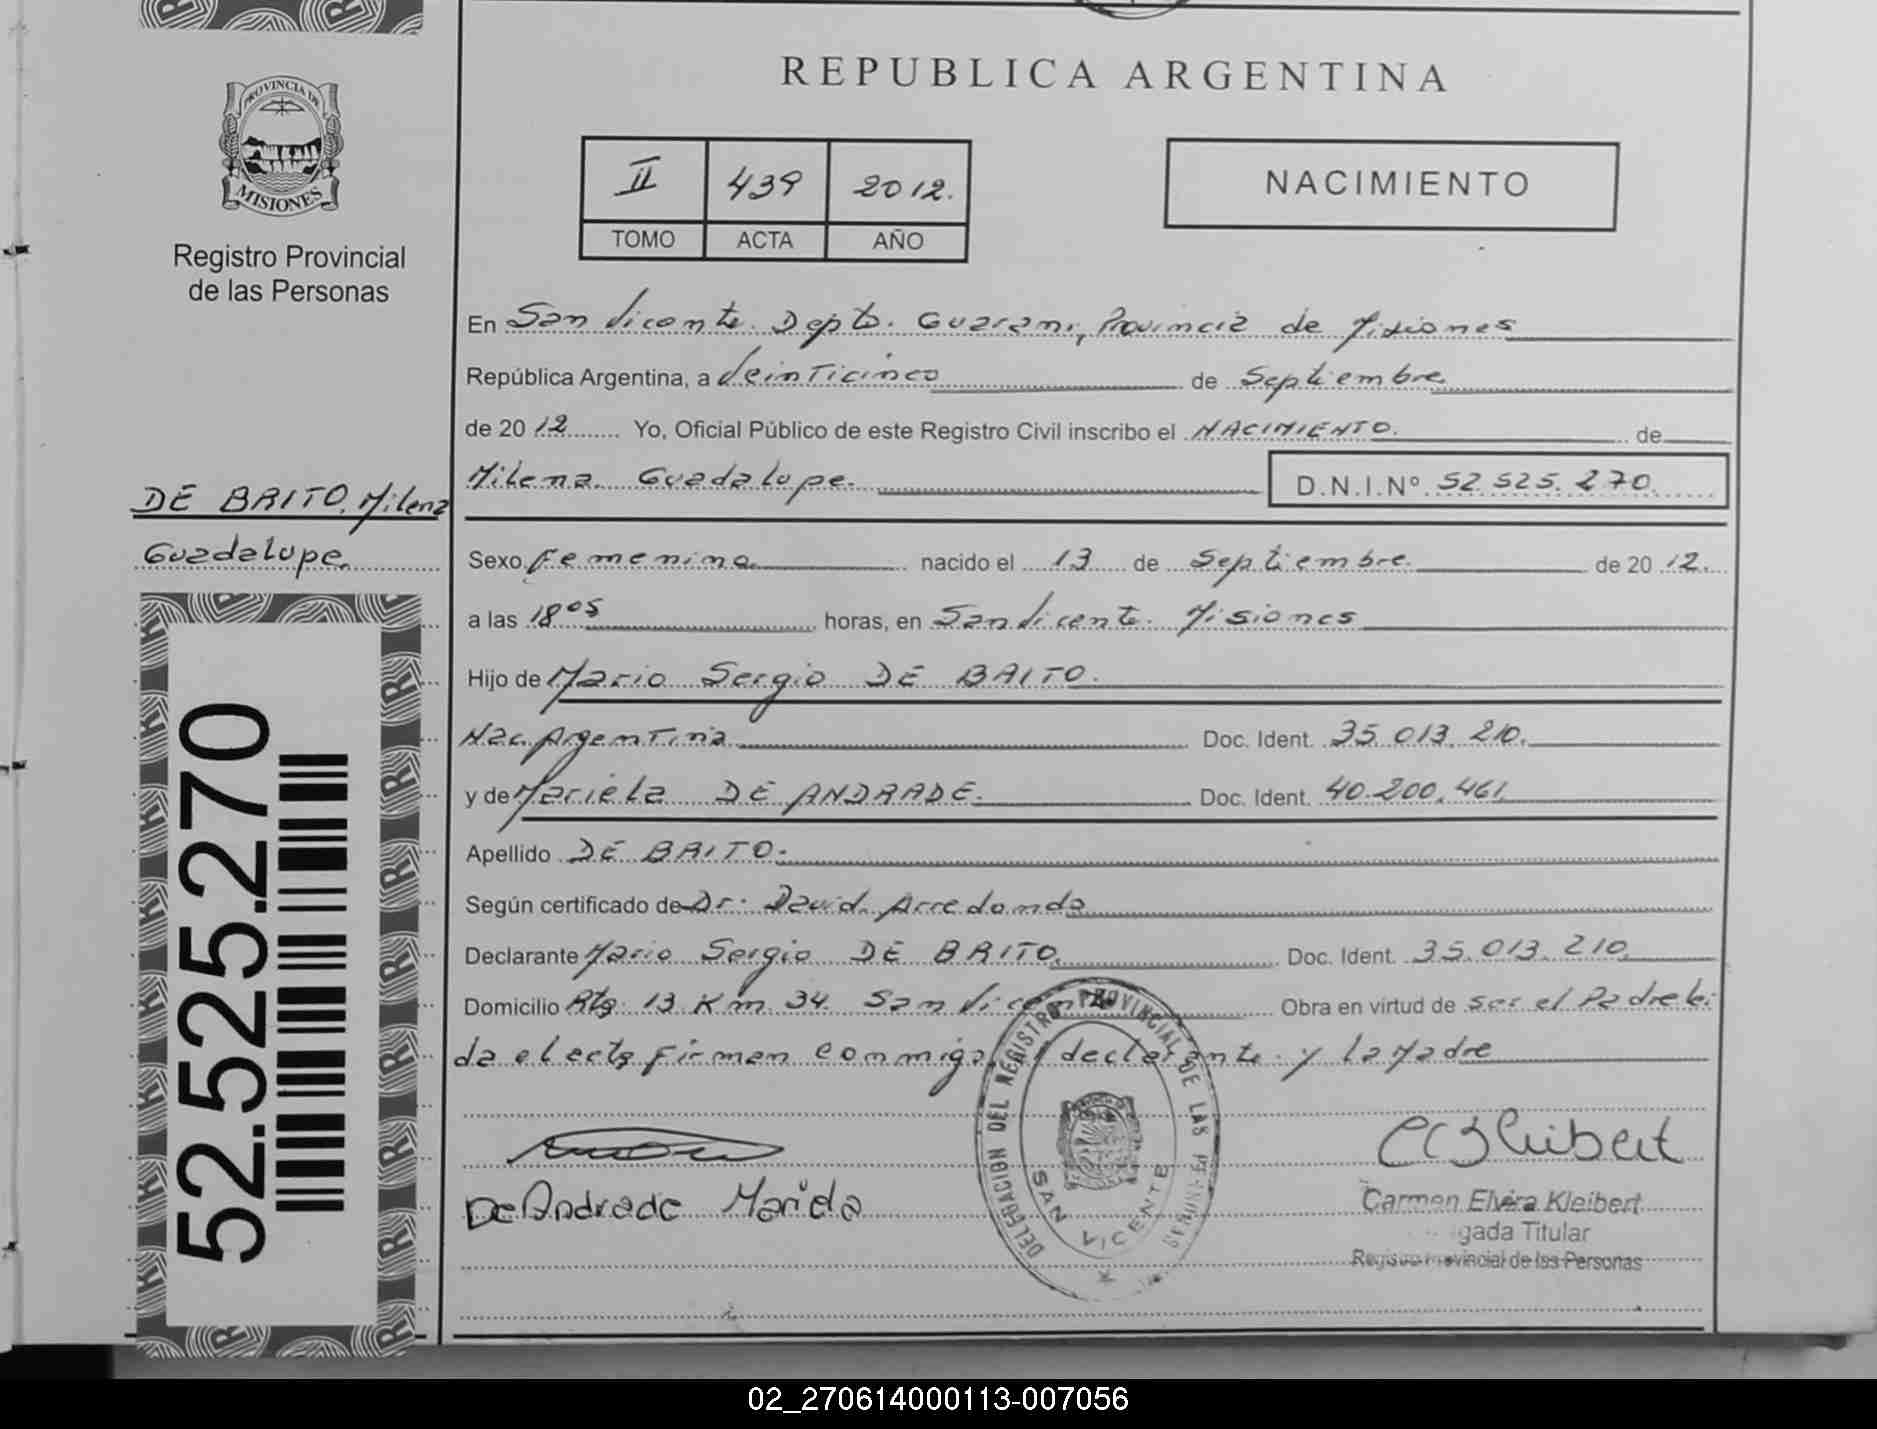 REPUBLICA ARGENTINA
PROVINCIA DE
MISIONES
Registro Provincial
de las Personas
II 439 2012.
TOMO ACTA AÑO
NACIMIENTO
En San Vicente. Dpto. Guarani, Provincia de Misiones
República Argentina, a Veinticinco de Septiembre
de 2012 Yo, Oficial Público de este Registro Civil inscribo el NACIMIENTO. de
Milena Guadalupe. D.N.I.Nº 52.525.270.
DE BRITO, Milena
Guadalupe.
Sexo Femenino nacido el 13 de Septiembre. de 2012.
a las 18 05 horas, en San Vicente. Misiones
Hijo de Mario Sergio DE BRITO.
Nac. Argentina Doc. Ident. 35.013.210.
y de Mariela DE ANDRADE. Doc. Ident. 40.200.461
Apellido DE BRITO.
Según certificado de Dr. David Arredondo
Declarante Mario Sergio DE BRITO. Doc. Ident. 35.013.210.
Domicilio Rta. 13 Km 34. San Vicente Obra en virtud de ser el Padre lei
da el acta firman conmigo declarante y la Madre
52.525.270
DELEGACION DEL REGISTRO PROVINCIAL DE LAS PERSONAS
SAN VICENTE
De Andrade Mariela
Carmen Elvira Kleibert
gada Titular
Registro Provincial de las Personas
02_270614000113-007056